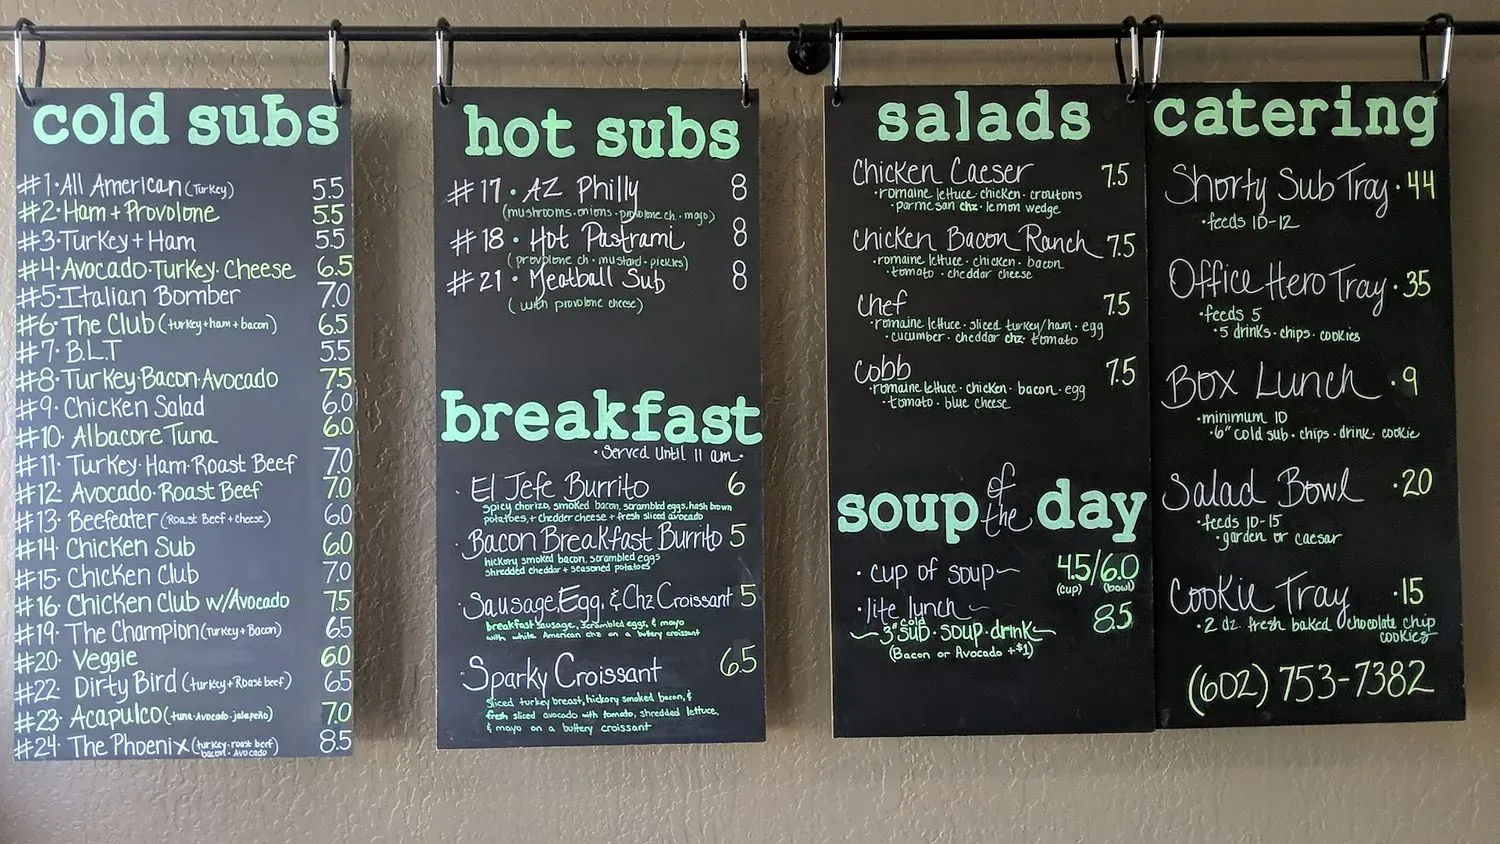 cold subs
#1·All American (Turkey) 5.5
#2·Ham + Provolone 5.5
#3·Turkey + Ham 5.5
#4·Avocado·Turkey·Cheese 6.5
#5·Italian Bomber 7.0
#6·The Club (turkey+ham+bacon) 6.5
#7·B.L.T 5.5
#8·Turkey·Bacon·Avocado 7.5
#9·Chicken Salad 6.0
#10·Albacore Tuna 6.0
#11·Turkey·Ham·Roast Beef 7.0
#12·Avocado·Roast Beef 7.0
#13·Beefeater (Roast Beef + cheese) 6.0
#14·Chicken Sub 6.0
#15·Chicken Club 7.0
#16·Chicken Club w/Avocado 7.5
#19·The Champion (Turkey + Bacon) 6.5
#20·Veggie 6.0
#22·Dirty Bird (turkey+Roast beef) 6.5
#23·Acapulco (tuna·Avocado·jalapeño) 7.0
#24·The Phoenix (turkey·roast beef 8.5
bacon·Avocado)
hot subs
#17·AZ Philly 8
(mushrooms·onions·provolone ch·mayo)
#18·Hot Pastrami 8
(provolone ch·mustard·pickles)
#21·Meatball Sub 8
(with provolone cheese)
breakfast
·Served until 11 am·
·El Jefe Burrito 6
spicy chorizo, smoked bacon, scrambled eggs, hash brown
potatoes, + chedder cheese + fresh sliced avocado
·Bacon Breakfast Burrito 5
hickory smoked bacon, scrambled eggs
shredded cheddar + seasoned potatoes
·Sausage, Egg, & Chz Croissant 5
breakfast sausage, scrambled eggs, & mayo
with white American chz on a buttery croissant
·Sparky Croissant 6.5
sliced turkey breast, hickory smoked bacon, &
fresh sliced avocado with tomato, shredded lettuce,
& mayo on a buttery croissant
salads
Chicken Caeser 7.5
·romaine lettuce·chicken·croutons
·parmesan chz·lemon wedge
Chicken Bacon Ranch 7.5
·romaine lettuce·chicken·bacon
·tomato·cheddar cheese
chef 7.5
·romaine lettuce·sliced turkey/ham·egg
·cucumber·cheddar chz·tomato
cobb 7.5
·romaine lettuce·chicken·bacon·egg
·tomato·blue cheese
soup of the day
·cup of soup~ 4.5/6.0
(cup) (bowl)
·lite lunch~ 8.5
cold
~3"sub·soup·drink~
(Bacon or Avocado +$1)
catering
Shorty Sub Tray·44
·feeds 10-12
Office Hero Tray·35
·feeds 5
·5 drinks·chips·cookies
Box Lunch·9
·minimum 10
·6" cold sub·chips·drink·cookie
Salad Bowl·20
·feeds 10-15
·garden or caesar
Cookie Tray·15
·2 dz. fresh baked chocolate chip
cookies
(602) 753-7382